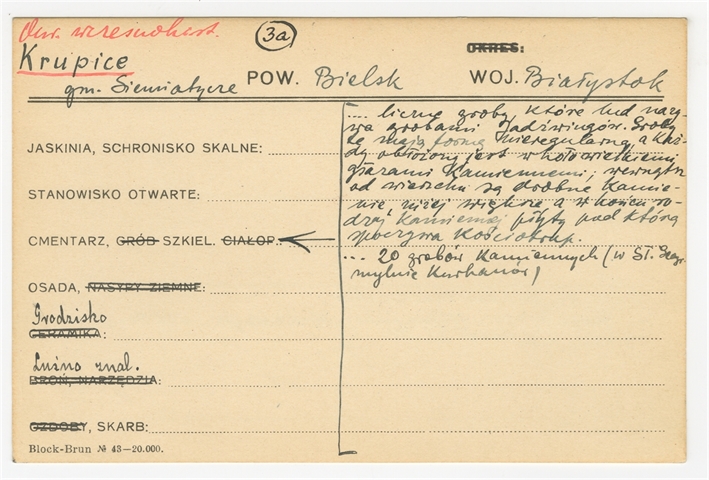 Chr. wczesnohist.
3a
OKRES:
Krupice
gm. Siemiatycze
POW. Bielsk
WOJ. Białystok
JASKINIA, SCHRONISKO SKALNE:
STANOWISKO OTWARTE:
CMENTARZ, GRÓB SZKIEL. CIAŁOP.
OSADA, NASYPY ZIEMNE:
Grodzisko
CERAMIKA:
Luźno znal.
BROŃ, NARZĘDZIA:
OZDOBY, SKARB:
Block-Brun № 43—20.000.
.... liczne groby, które lud nazy-
wa grobami Jadźwingów. Groby
te mają formę nieregularną, a każ-
dy obłożony jest w koło wielkiemi
głazami kamiennemi; wewnątrz
od wierzchu są drobne kamie-
nie, niżej większe a w końcu ro-
dzaj kamiennej płyty pod którą
spoczywa kościotrup.
... 20 grobów kamiennych (w Sł. Geogr.
mylnie kurhanów)